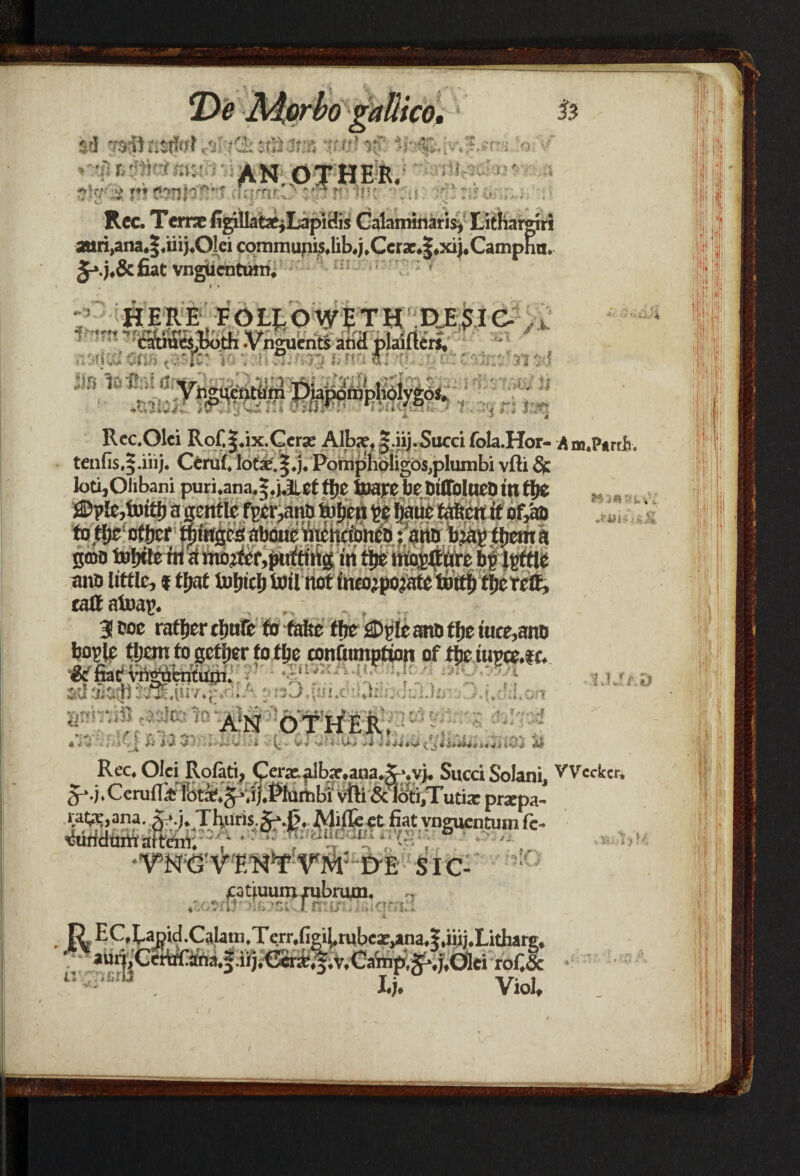 De Morbo gallico. 33
AN OTHER.
Rec. Terræ sigillatæ, Lapidis Calaminaris, Lithargiri
auri, ana.℥.iiij. Olei communis. lib.j. Ceræ.℥.xij. Camphu.
ʒ.j. & fiat vnguentum.
HERE FOLLOWETH DESIC-
catiues, Both Vnguents and plaisters.
Vnguentum Diapompholygos.
Rec. Olei Ros.℥.ix. Ceræ Albæ.℥.iij. Succi sola. Hor-
tensis.℥.iiij. Ceruf. lotæ.℥.j. Pompholigos, plumbi vsti &
loti, Olibani puri. ana.℥.j. Let the ware be dissolued in the
Oyle, with a gentle fyer, and when ye haue taken it of, ad
to the other thinges aboue mencioned: and bray them a
good while in a morter, putting in the moysture by lyttle
and little, & that which wil not incorporate with the rest,
cast away.
I doe rather chuse to take the Oyle and the iuce, and
boyle them to gether to the consumption of the iuyce. &c.
& fiat vnguentum.
AN OTHER.
Rec. Olei Rosati, Ceræ albæ. ana.ʒ.vj. Succi Solani,
ʒ.j. Cerussæ lotæ.ʒ.ij. Plumbi vsti & loti, Tutiæ præpa-
ratæ, ana. ʒ.j. Thuris.ʒ.ß. Misse et fiat vnguentum se-
cundum artem.
VNGVENTVM DE SIC-
catiuum rubrum.
℞ EC. Lapid. Calam. Terr. sigil. rubeæ, ana.℥.iiij. Litharg.
auri, Cerus. ana.℥.iij. Ceræ.℥.v. Camp.ʒ.j. Olei ros. &
I.j. Viol.
Am. Parrh.
VVecker.